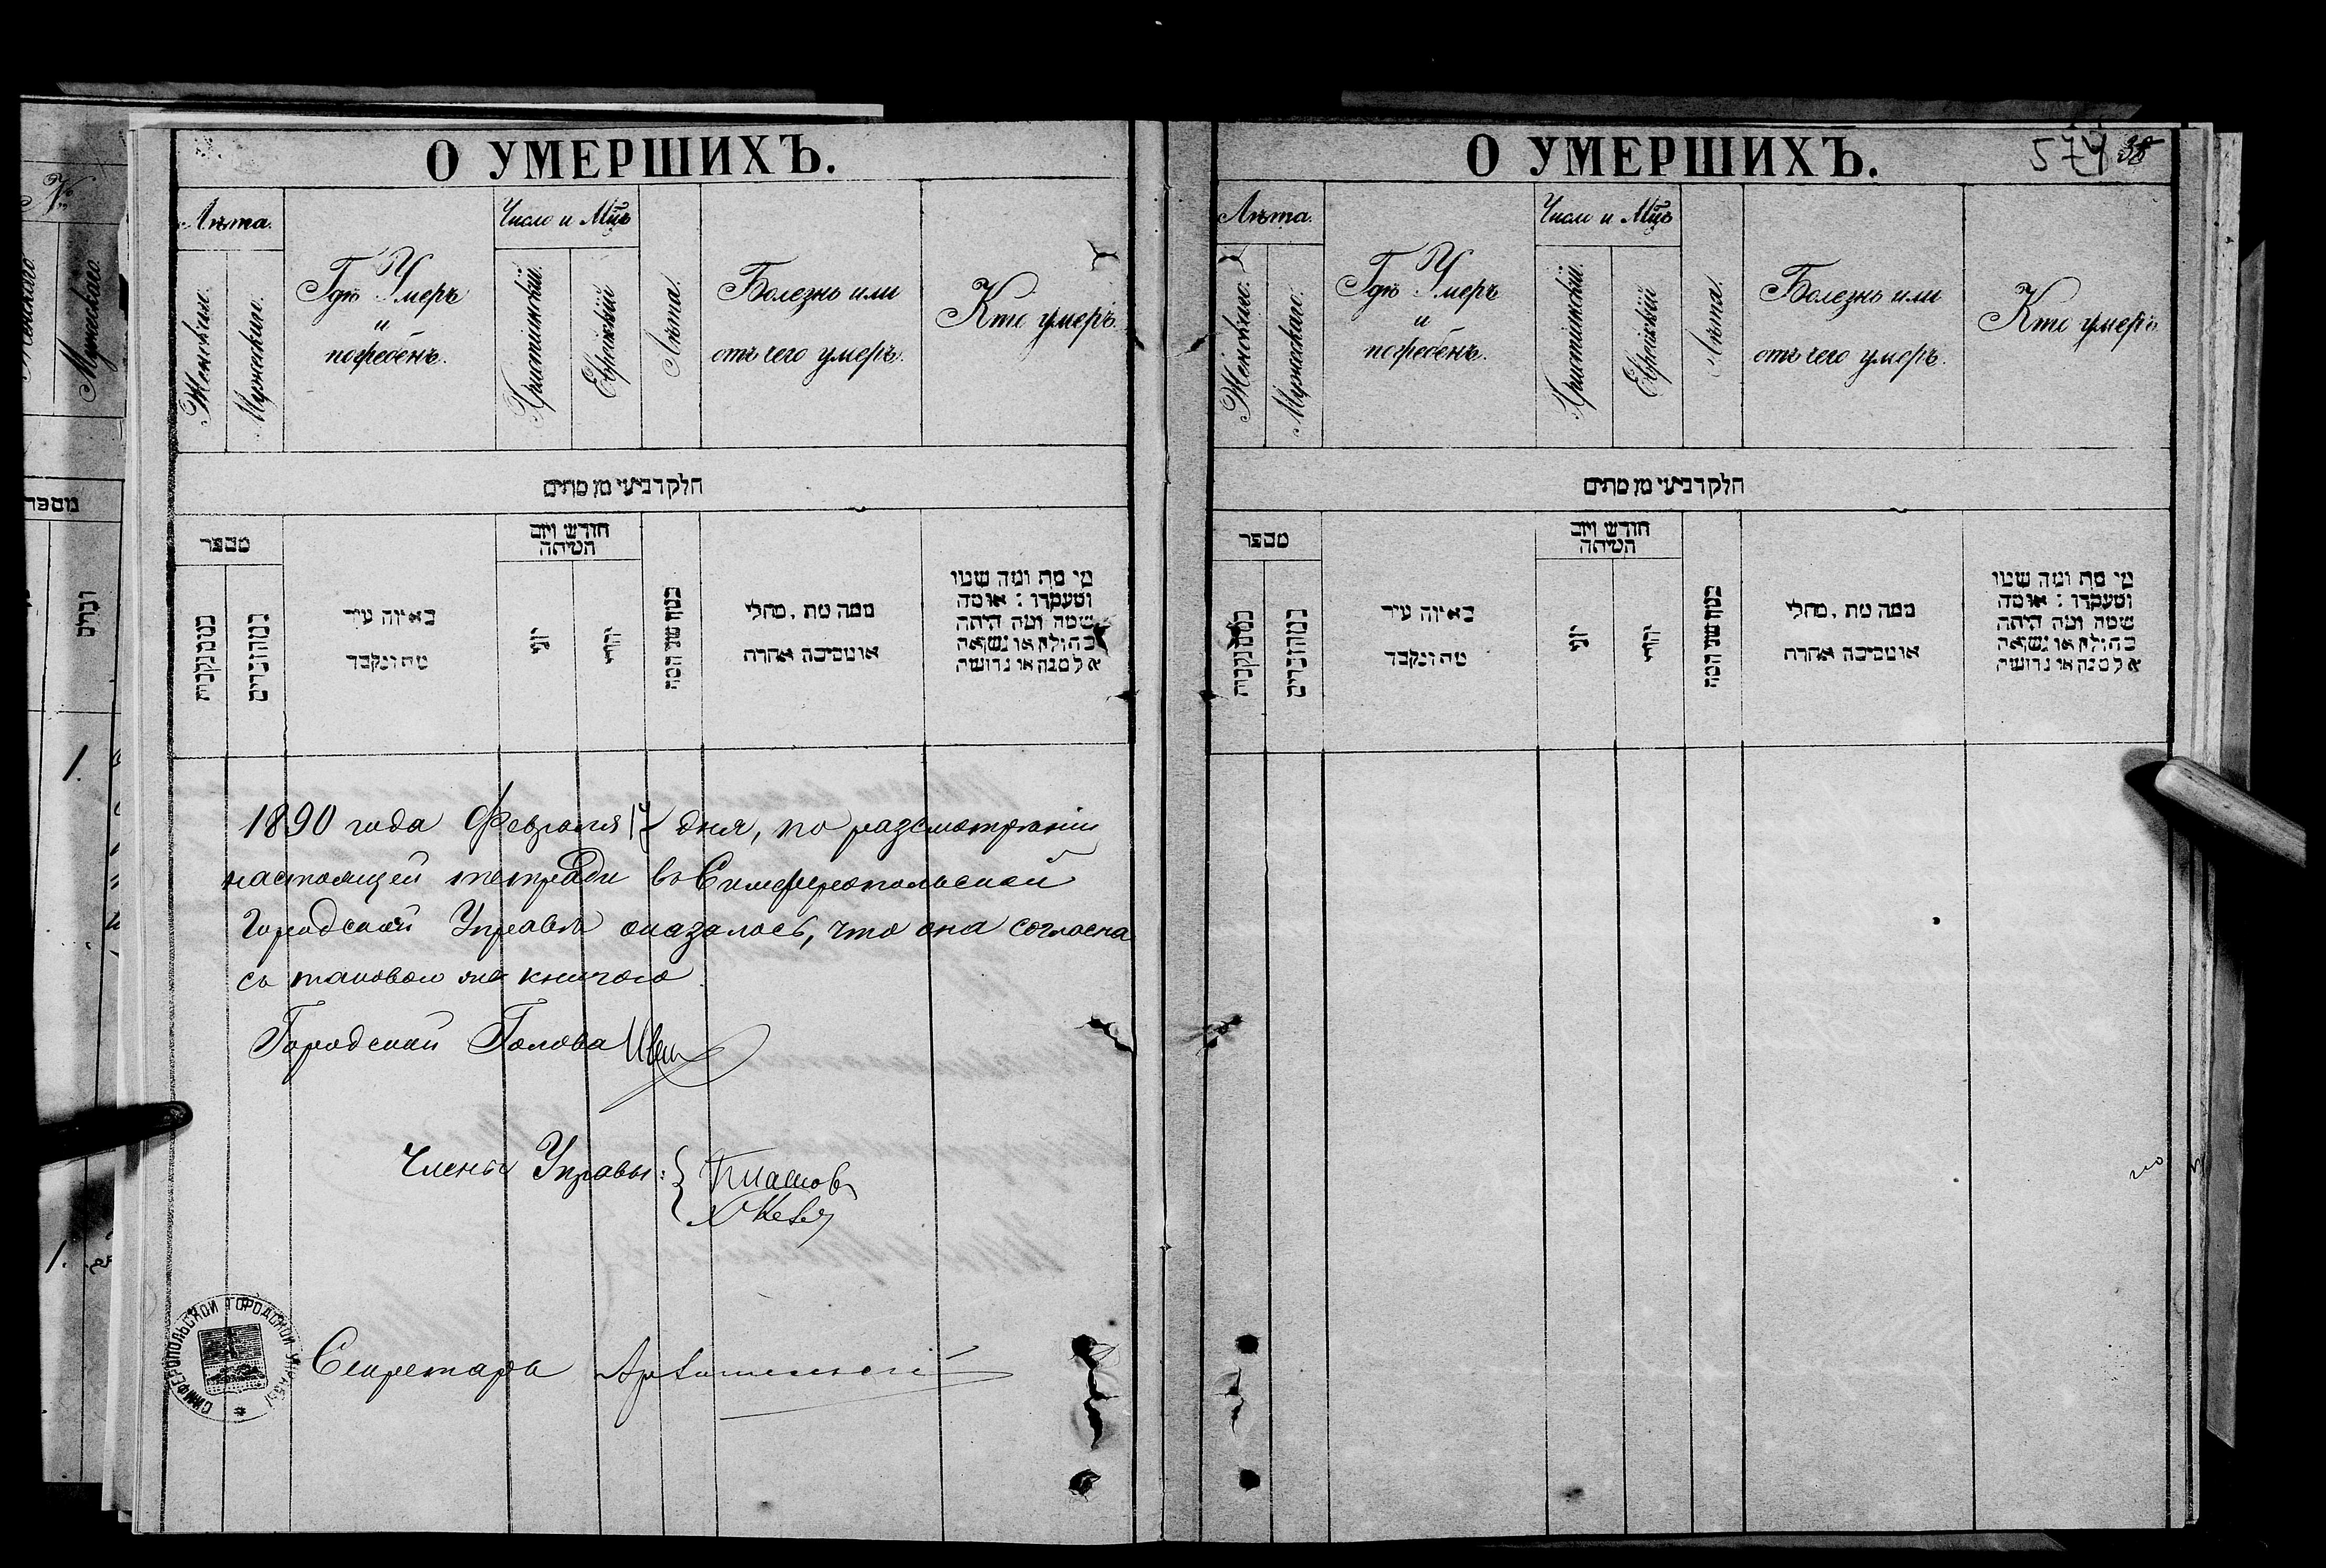 О УМЕРШИХЪ.
Лѣта.
Женскаго.
Мужескаго.
Гдѣ Умеръ
и
погребенъ.
Число и Мцъ
Христіанскій.
Еврейскій
Лѣта.
Болезнь или
отъ чего умеръ.
Кто умеръ.
חלק רביעי מן מתים
מספר
באיזה עיר
מת ונקבר
חודש ויום
המיתה
יוני
יהודי
ממה מת, מחלי
או סיבה אחרת
מי מת ומה שמו
ומעמדו: או מה
שמה ומה היתה
בתולה או נשואה
אלמנה או גרושה
1890 года Февраля 17 дня, по разсмотрѣніи
настоящей тетради въ Симферопольской
Городской Управѣ оказалось, что она согласна
съ таковою же книгою.
Городской Голова Иван
Члены Управы:
Секретарь
СИМФЕРОПОЛЬСКОЙ ГОРОДСКОЙ УПРАВЫ
О УМЕРШИХЪ.
574 38
Лѣта.
Женскаго.
Мужескаго.
Гдѣ Умеръ
и
погребенъ.
Число и Мцъ
Христіанскій.
Еврейскій
Лѣта.
Болезнь или
отъ чего умеръ.
Кто умеръ
חלק רביעי מן מתים
מספר
באיזה עיר
מת ונקבר
חודש ויום
המיתה
יוני
יהודי
ממה מת, מחלי
או סיבה אחרת
מי מת ומה שמו
ומעמדו: או מה
שמה ומה היתה
בתולה או נשואה
אלמנה או גרושה